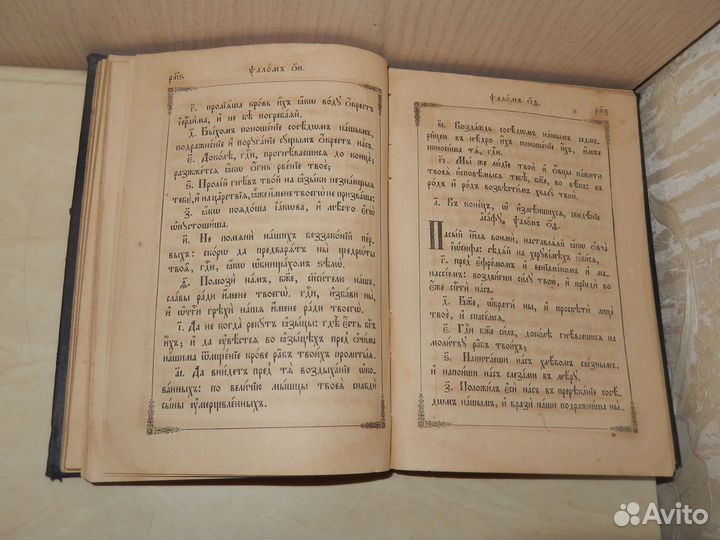 рм҃ѕ
Ѱало́мъ о҃и.
г҃. пролїѧ́ша кро́вь и҆́хъ ꙗ҆́кѡ во́дꙋ ѡ҆́крестъ
і҆ерⷭ҇ли́ма, и҆ не бѣ̀ погреба́ѧй.
д҃. Бы́хомъ поноше́нїе сосѣ́дѡмъ на́шымъ,
подражне́нїе и҆ порꙋга́нїе сꙋ́щымъ ѡ҆́крестъ на́съ.
є҃. Доко́лѣ, гдⷭ҇и, прогнѣ́ваешисѧ до конца̀;
разжже́тсѧ ꙗ҆́кѡ ѻ҆́гнь рве́нїе твоѐ;
ѕ҃. Проле́й гнѣ́въ тво́й на ꙗ҆зы́ки незна́ющыѧ
тебѐ, и҆ на ца́рствїѧ, ꙗ҆̀же и҆́мене твоегѡ̀ не призва́ша:
з҃. ꙗ҆́кѡ поѧдо́ша і҆а́кѡва, и҆ мѣ́сто є҆гѡ̀
ѡ҆пꙋстоши́ша.
и҃. Не помѧнѝ на́шихъ беззако́нїй пе́р-
выхъ: ско́рѡ да предварѧ́тъ ны̀ щедрѡ́ты
твоѧ̑, гдⷭ҇и, ꙗ҆́кѡ ѡ҆бнища́хомъ ѕѣлѡ̀.
ѳ҃. Помозѝ на́мъ, бж҃е, спⷭ҇и́телю на́шъ,
сла́вы ра́ди и҆́мене твоегѡ̀: гдⷭ҇и, и҆зба́ви ны̀,
и҆ ѡ҆чⷭ҇ти грѣхѝ на́шѧ и҆́мене ра́ди твоегѡ̀.
і҃. Да не когда̀ рекꙋ́тъ ꙗ҆зы́цы: гдѣ̀ є҆́сть бг҃ъ
и҆́хъ; и҆ да ᲂу҆вѣ́стсѧ во ꙗ҆зы́цѣхъ пред̾ ѻ҆чи́ма
на́шима ѿмще́нїе кро́ве ра̑бъ твои́хъ пролиты́ѧ.
а҃і. Да вни́детъ пред̾ тѧ̀ воздыха́нїе ѡ҆ко-
ва́нныхъ: по вели́чїю мы́шцы твоеѧ̀ снабдѝ
сы́ны ᲂу҆мерщвле́нныхъ.
Ѱало́мъ о҃ѳ.
рм҃з
в҃і. Возда́ждь сосѣ́дѡмъ на́шымъ седме-
ри́цею въ нѣ́дро и҆́хъ поноше́нїе и҆́хъ, и҆́мже
поноси́ша тѧ̀, гдⷭ҇и.
г҃і. Мы́ же лю́дїе твоѝ и҆ ѻ҆́вцы па́жити
твоеѧ̀ и҆сповѣ́мысѧ тебѣ̀, бж҃е, во вѣ́къ: въ
ро́дъ и҆ ро́дъ возвѣсти́мъ хвалꙋ̀ твою̀.
а҃. Въ коне́цъ, ѡ҆ и҆змѣ́ньшихсѧ, свидѣ́нїе
а҆са́фꙋ, ѱало́мъ о҃ѳ.
Пасы́й і҆и҃лѧ вонмѝ, наставлѧ́ѧй ꙗ҆́кѡ ѻ҆вча̀
і҆ѡ́сифа: сѣдѧ́й на херꙋві́мѣхъ ꙗ҆ви́сѧ,
г҃. пред̾ є҆фре́момъ и҆ венїамі́номъ и҆ ма-
нассі́емъ: воздви́гни си́лꙋ твою̀, и҆ прїидѝ во
є҆́же спⷭ҇тѝ на́съ.
д҃. Бж҃е, ѡ҆братѝ ны̀, и҆ просвѣтѝ лицѐ
твоѐ, и҆ спасе́мсѧ.
є҃. Гдⷭ҇и бж҃е си́лъ, доко́лѣ гнѣ́ваешисѧ на
моли́твꙋ ра̑бъ твои́хъ;
ѕ҃. Напита́еши на́съ хлѣ́бомъ сле́знымъ,
и҆ напои́ши на́съ слеза́ми въ мѣ́рꙋ.
з҃. Положи́лъ є҆сѝ на́съ въ пререка́нїе сосѣ́-
дѡмъ на́шымъ, и҆ вразѝ на́ши подражни́ша ны̀.
Avito